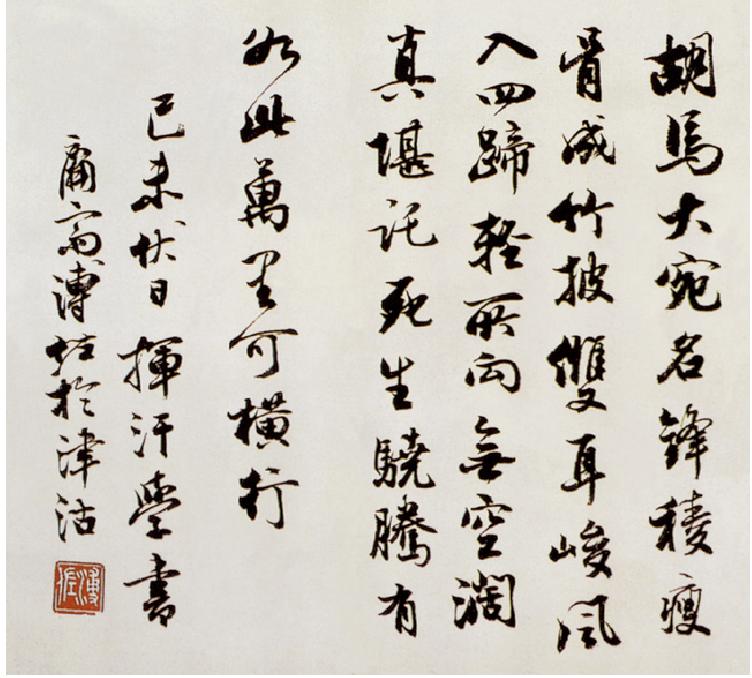 胡馬大宛名鋒稜瘦
骨成竹披雙耳峻風
入四蹄輕所向無空濶
真堪託死生驍騰有
如此萬里可橫行
己未伏日揮汗學書
庸齋溥佐於津沽
溥佐